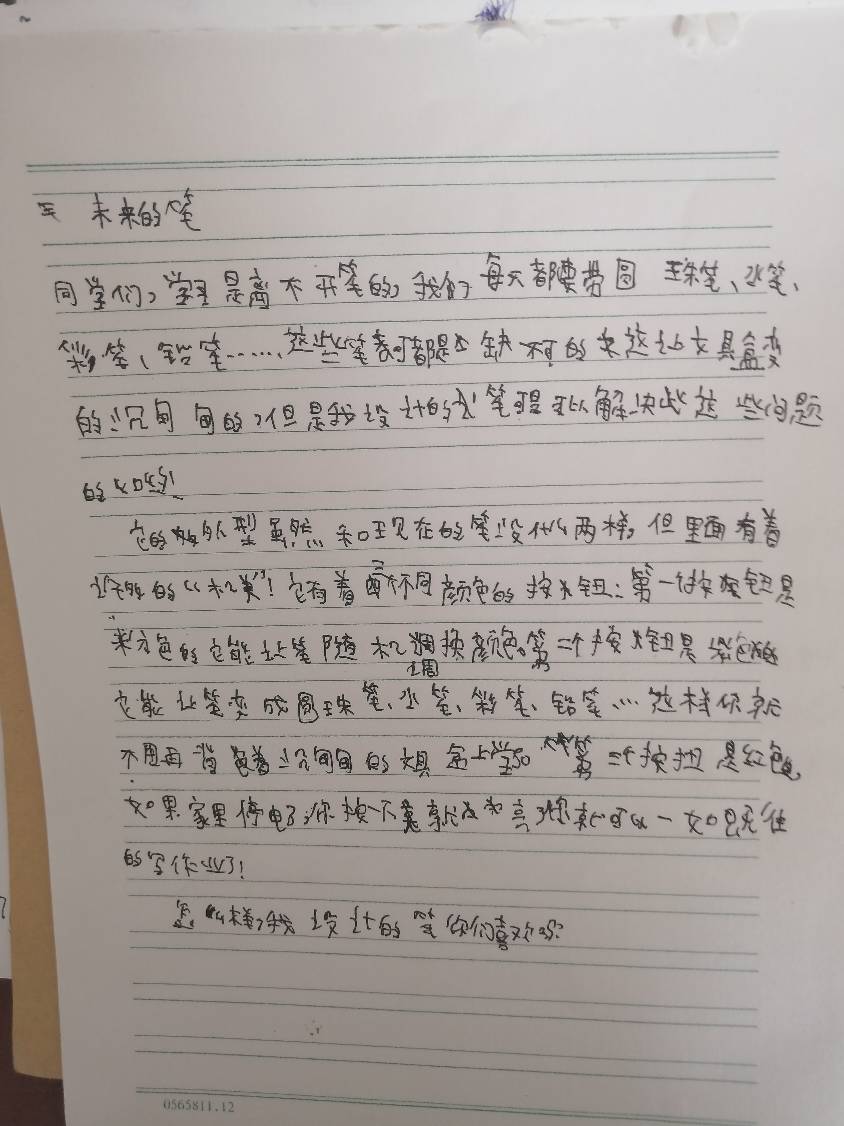 未来的笔
同学们,学习是离不开笔的,我们每天都要带圆珠笔、水笔、
彩笔、铅笔……这些笔都是缺不可的来这让文具盒变
的沉甸甸的,但是我设计的笔可以解决这些问题
的
它的外型虽然和现在的笔没什么两样,但里面有着
的“机关”!它有着三个不同颜色的按钮:第一个按钮是
色的它能让笔随机调换颜色。第二个按钮是紫色的
它能让笔变成圆珠笔、水笔、彩笔、铅笔…这样你就
不用再背着沉甸甸的文具盒上学了。第三个按扭是红色,
如果家里停电了,你按一下就亮了你就可以一如既往
的写作业了!
怎么样,我设计的笔你们喜欢吗?
0565811.12